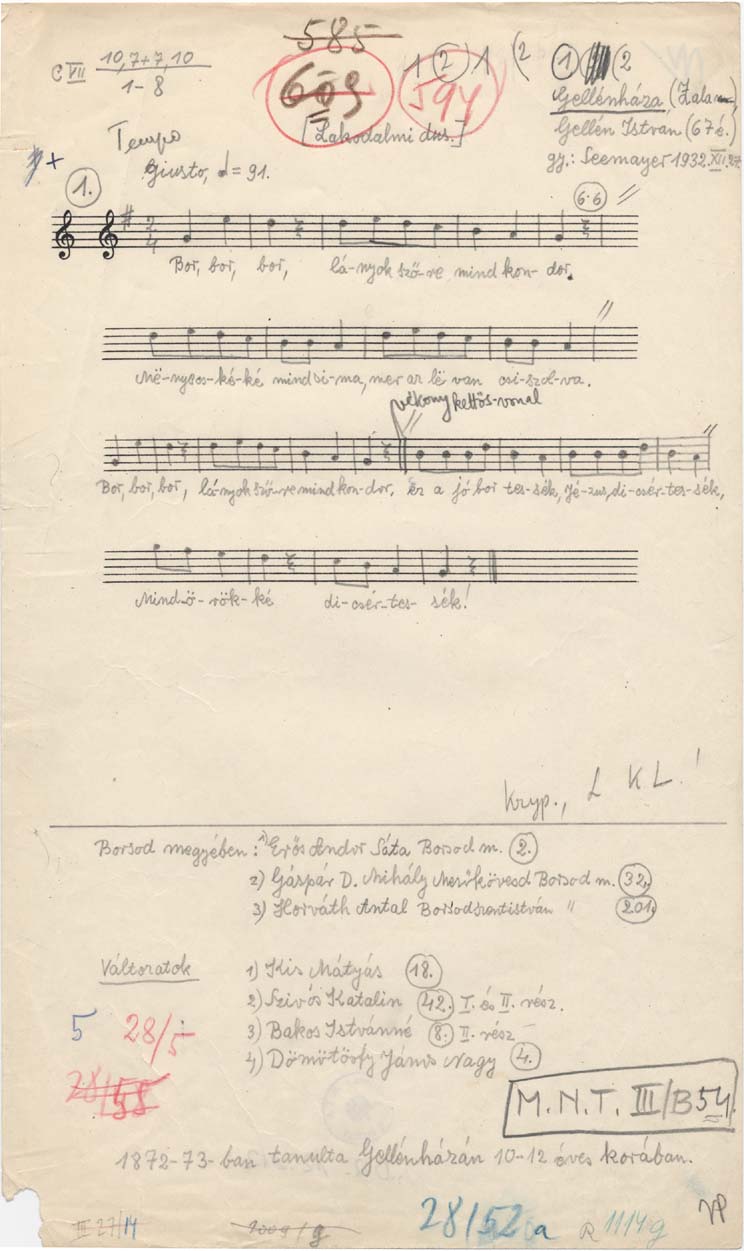 585
C VII 10,7+7,10
1-8
609
II
594
1 (2) 1 (2
1 (2
[Lakodalmi dus.]
Gellénháza (Zala
Gellén István (67 é.)
gy.: Seemayer 1932. XII. 27.
Tempo
Giusto, ♩= 91.
1.
6·6
2
4
Bor, bor, bor, lá-nyok szö-re mind kon-dor.
Më-nyecs-ké-ké mind si-ma, mer az lë van csi-szol-va.
vékony kettős-vonal
Bor, bor, bor, lá-nyok szö-re mind kon-dor, ez a jó bor tes-sék, Jé-zus, di-csér-tes-sék,
Mind-ö-rök-ké di-csér-tes-sék!
Kryp., L KL!
Borsod megyében: 1) Erős Andor Sáta Borsod m. 2.
2) Gáspár D. Mihály Mezőkövesd Borsod m. 32.
3) Horváth Antal Borsodszentistván " 201.
Változatok
1) Kis Mátyás 18.
2) Szivós Katalin 42. I. és II. rész.
3) Bakos Istvánné 8. II. rész
4) Dömötörfy János Nagy 4.
5
28/5
28/58
M.N.T. III/B 54.
1872-73-ban tanulta Gellénházán 10-12 éves korában.
III 27/14
28/52a
R 1114g
VP